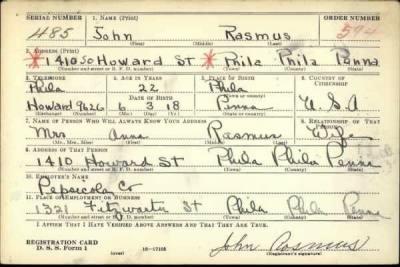 SERIAL NUMBER 1. NAME (Print) ORDER NUMBER
485 John Rasmus 594
(First) (Middle) (Last)
2. ADDRESS (Print)
* 1410 So Howard St * Phila Phila Penna
(Number and street or R. F. D. number) (Town) (County) (State)
3. TELEPHONE 4. AGE IN YEARS 5. PLACE OF BIRTH 6. COUNTRY OF CITIZENSHIP
Phila 22 Phila
DATE OF BIRTH (Town or county)
Howard 9626 6 3 18 Penna U.S.A
(Exchange) (Number) (Mo.) (Day) (Yr.) (State or country)
7. NAME OF PERSON WHO WILL ALWAYS KNOW YOUR ADDRESS 8. RELATIONSHIP OF THAT PERSON
Mrs Anna Rasmus Wife
(Mr., Mrs., Miss) (First) (Middle) (Last)
9. ADDRESS OF THAT PERSON
1410 Howard St Phila Phila Penna
(Number and street or R. F. D. number) (Town) (County) (State)
10. EMPLOYER'S NAME
Pepsicola Co
11. PLACE OF EMPLOYMENT OR BUSINESS
1321 St Phila Phila Penna
(Number and street or R. F. D. number) (Town) (County) (State)
I AFFIRM THAT I HAVE VERIFIED ABOVE ANSWERS AND THAT THEY ARE TRUE.
REGISTRATION CARD
D. S. S. Form 1 (over) 16-17105 John Rasmus
(Registrant's signature)